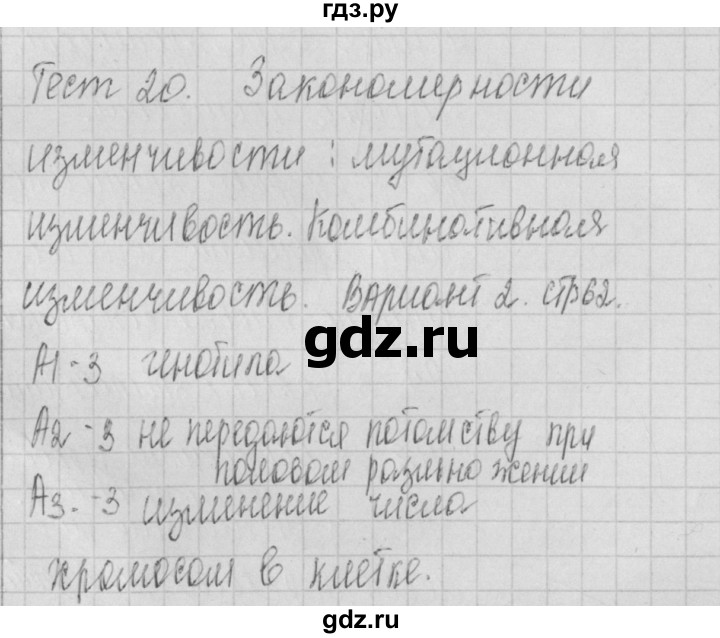 гдз.ру
Тест 20. Закономерности
изменчивости: мутационная
изменчивость. Комбинативная
изменчивость. Вариант 2. стр 62.
gdz.ru
А1-3 генотипа
А2-3 не передаются потомству при
половом размножении
А3.-3 изменение числа
хромосом в клетке.
gdz.ru